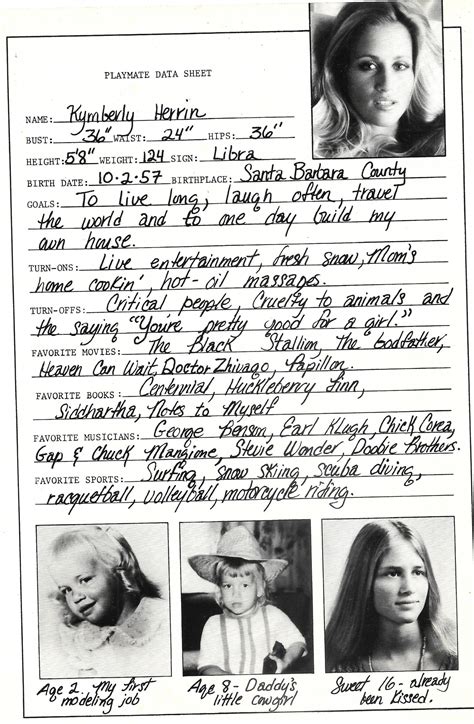 PLAYMATE DATA SHEET
NAME: Kymberly Herrin
BUST: 36" WAIST: 24" HIPS: 36"
HEIGHT: 5'8" WEIGHT: 124 SIGN: Libra
BIRTH DATE: 10-2-57 BIRTHPLACE: Santa Barbara County
GOALS: To live long, laugh often, travel
the world and to one day build my
own house.
TURN-ONS: Live entertainment, fresh snow, Mom's
home cookin', hot-oil massages.
TURN-OFFS: Critical people, Cruelty to animals and
the saying "You're pretty good for a girl."
FAVORITE MOVIES: The Black Stallion, The Godfather,
Heaven Can Wait, Doctor Zhivago, Papillon.
FAVORITE BOOKS: Centennial, Huckleberry Finn,
Siddhartha, Notes to Myself
FAVORITE MUSICIANS: George Benson, Earl Klugh, Chick Corea,
Gap & Chuck Mangione, Stevie Wonder, Doobie Brothers.
FAVORITE SPORTS: Surfing, snow skiing, scuba diving,
racquetball, volleyball, motorcycle riding.
Age 2. My first
modeling job
Age 8 - Daddy's
little cowgirl
Sweet 16 - already
been kissed.